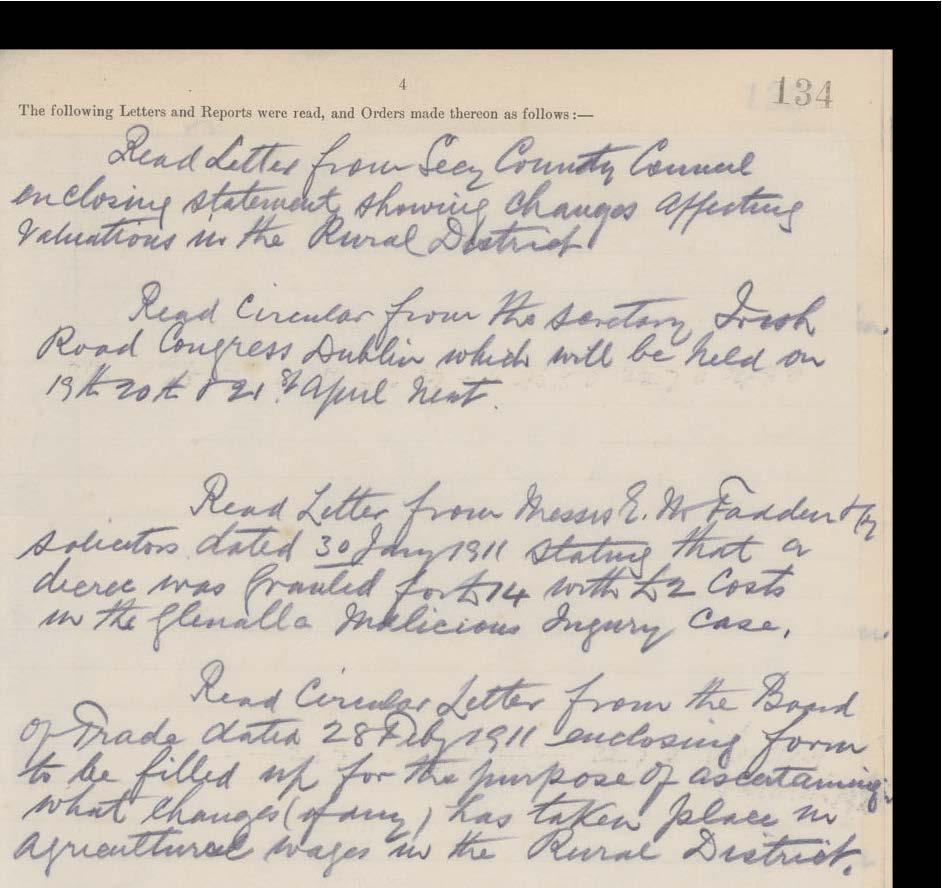 4
134
The following Letters and Reports were read, and Orders made thereon as follows :—
Read Letter from Secy County Council
enclosing statement showing changes affecting
Valuations in the Rural District
Read Circular from the secretary Irish
Road Congress Dublin which will be held on
19th 20th & 21st April next.
Read Letter from Messrs E. McFadden & Co
solicitors dated 30 Jany 1911 stating that a
decree was granted for £14 with £2 Costs
in the Glenalla Malicious Ingury Case.
Read Circular Letter from the Board
of Trade dated 28 Feby 1911 enclosing form
to be filled up for the purpose of ascertaining
what changes (if any) has taken place in
Agricultural wages in the Rural District.